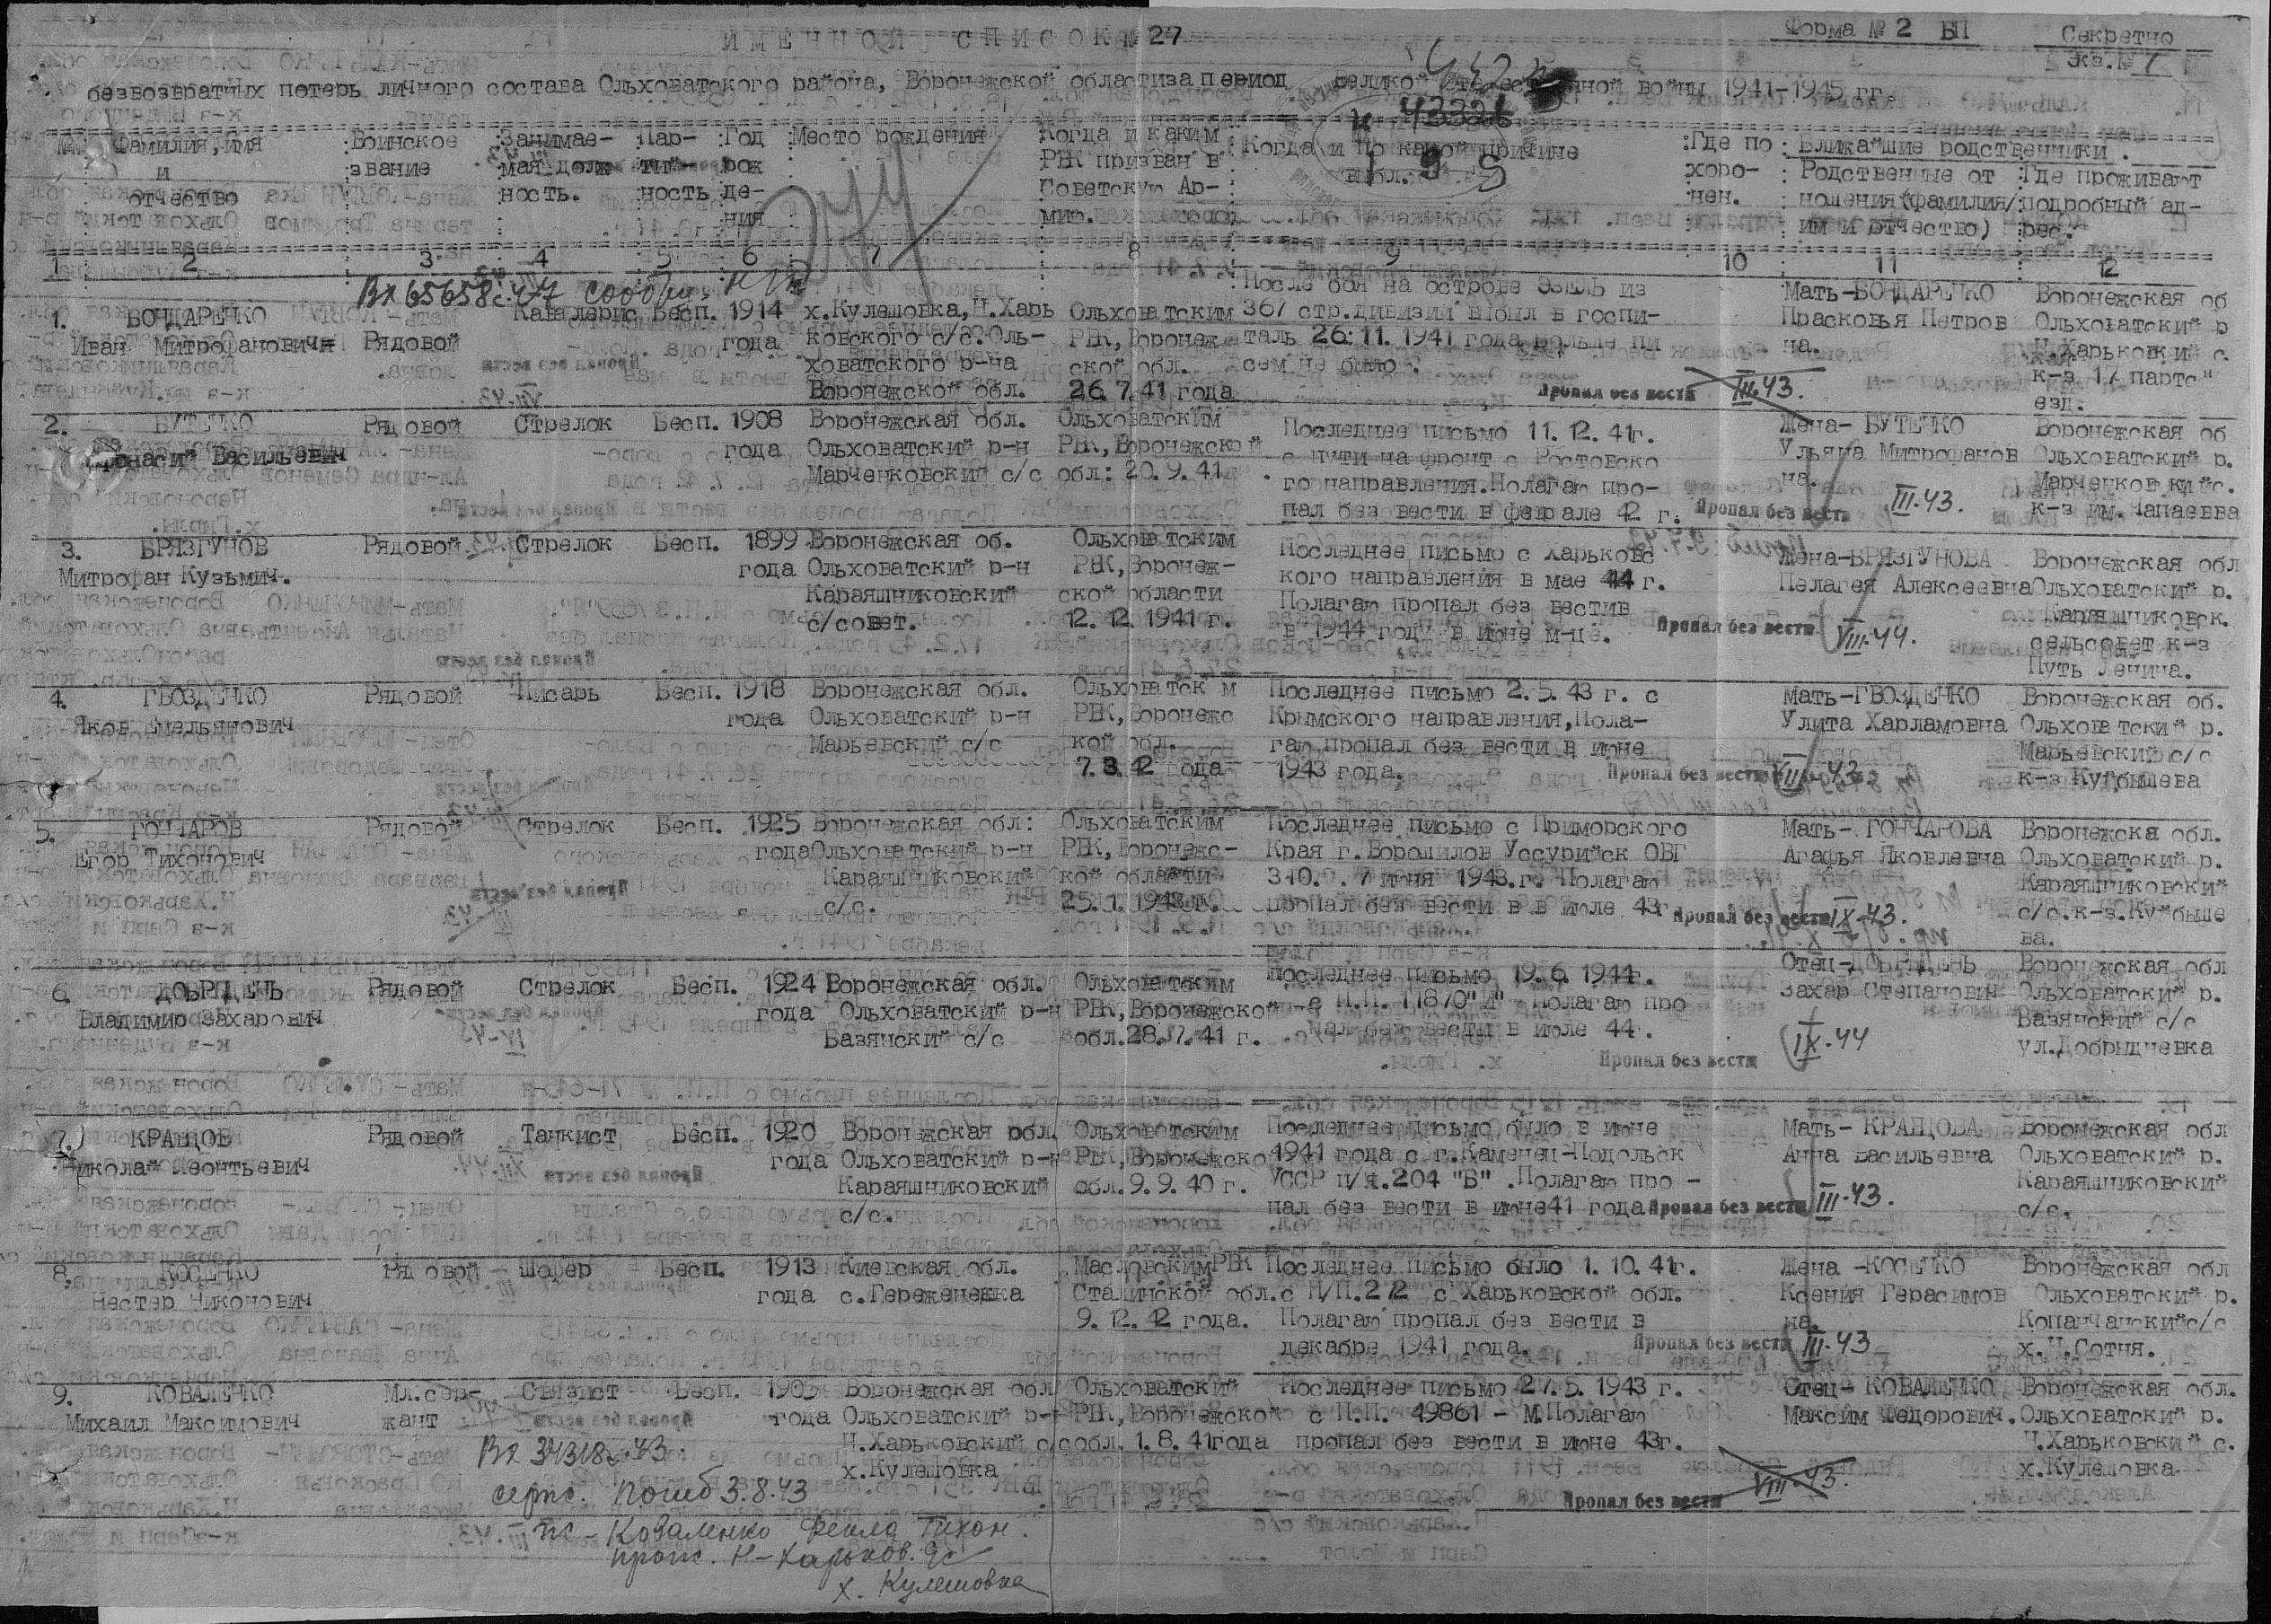 Форма № 2 БП Секретно
Экз. № 1
ИМЕННОЙ СПИСОК № 27
безвозвратных потерь личного состава Ольховатского района, Воронежской области за период великой Отечественной войны 1941-1945 гг.
№ Фамилия, имя и отчество
Воинское звание
Занимае-
мая долж
ность.
Пар-
тий-
ность
Год
рож
де-
ния
Место рождения
Когда и каким
РВК призван в
Советскую Ар-
мию.
Когда и по какой причине
выбл.
Где по
хоро-
нен.
Ближайшие родственники.
Родственные от
ношения (фамилия/
имя и отчество)
Где проживают
подробный ад-
рес.
1 2 3 4 5 6 7 8 9 10 11 12
Вх 65658с-47
1. БОНДАРЕНКО
Иван Митрофанович
Рядовой
Кавалерис
Бесп.
1914
года
х.Кулешовка, Н.Харь
ковского с/с.Оль-
ховатского р-на
Воронежской обл.
Ольховатским
РВК, Воронеж
ской обл.
26.7.41 года
После боя на острове Эзель из
367 стр.дивизии выбыл в госпи-
таль 26.11.1941 года больше пи
сем не было.
Пропал без вести III.43.
Мать-БОНДАРЕНКО
Прасковья Петров
на.
Воронежская об
Ольховатский р
Н.Харьковский с.
к-з 17 партс"
езд.
2. БУТЕНКО
Васильевич
Рядовой
Стрелок
Бесп.
1908
года
Воронежская обл.
Ольховатский р-н
Марченковский с/с
Ольховатским
РВК, Воронежской
обл: 20.9.41
Последнее письмо 11.12.41г.
с пути на фронт с Ростовско
го направления. Полагаю про-
пал без вести в феврале 42 г.
Пропал без вести III.43.
Жена- БУТЕНКО
Ульяна Митрофанов
на.
Воронежская об
Ольховатский р.
Марченковкийс.
к-з им.Чапаевва
3. БРЯЗГУНОВ
Митрофан Кузьмич.
Рядовой
Стрелок
Бесп.
1899
года
Воронежская об.
Ольховатский р-н
Караяшниковский
с/совет.
Ольховатским
РВК, Воронеж-
ской области
12.12.1941 г.
Последнее письмо с Харьковс
кого направления в мае 44 г.
Полагаю пропал без вестив
в 1944 году в июне м-це.
Пропал без вести VIII.44.
Жена-БРЯЗГУНОВА
Пелагея Алексеевна
Воронежская обл
Ольховатский р.
Караяшниковск.
сельсовет к-з
Путь Ленина.
4. ГВОЗДЕНКО
Яков Емельянович
Рядовой
Писарь
Бесп.
1918
года
Воронежская обл.
Ольховатский р-н
Марьевский с/с
Ольховатск м
РВК, Воронежс
кой обл.
7.3.42 года
Последнее письмо 2.5.43 г. с
Крымского направления, Пола-
гаю пропал без вести в июне
1943 года.
Пропал без вести VII.43
Мать-ГВОЗДЕНКО
Улита Харламовна
Воронежская об.
Ольховатский р.
Марьевский с/с
к-з Куйбышева
5. ГОНЧАРОВ
Егор Тихонович
Рядовой
Стрелок
Бесп.
1925
года
Воронежская обл:
Ольховатский р-н
Караяшниковский
с/с.
Ольховатским
РВК, Воронежс-
кой области
25.1.1943 г.
Последнее письмо с Приморского
Края г.Ворошилов Уссурийск ОВГ
310. 7 июня 1943.г. Полагаю
пропал без вести в в июле 43г
Пропал без вести IX.43.
Мать- ГОНЧАРОВА
Агафья Яковлевна
Воронежска обл.
Ольховатский р.
Караяшниковский
с/с.к-з.Куйбыше
ва.
6. ДОБРИДЕНЬ
Владимир Захарович
Рядовой
Стрелок
Бесп.
1924
года
Воронежская обл.
Ольховатский р-н
Базянский с/с
Ольховатским
РВК, Воронежской
Последнее письмо 19.6 1944г.
с П.П. 11870"И" Полагаю про
пал без вести в июле 44г.
Пропал без вести IX.44
Захар Степанович
Воронежская обл
Ольховатский р.
Базянский с/с
ул.Добрыдневка
7. КРАЩОВ
Николай Леонтьевич
Рядовой
Танкист
Бесп.
1920
года
Воронежская обл.
Ольховатский р-н
Караяшниковский
с/с.
Ольховатским
РВК, Воронежской
обл.9.9.40 г.
Последнее письмо было в июне
1941 года с г.Каменец-Подольск
УССР п/я.204 "Б" .Полагаю про -
пал без вести в июне41 года
Пропал без вести III.43.
Мать- КРАЩОВА
Анна Васильевна
Воронежская обл
Ольховатский р.
Караяшниковский
с/с.
8. КОСЕНКО
Нестер Никонович
Рядовой
Шофер
Бесп.
1913
года
Киевская обл.
с.Тереженевка
Масловским РВК
Сталинской обл.
9.12.42 года.
Последнее письмо было 1.10.41г.
с П/П.212 с Харьковской обл.
Полагаю пропал без вести в
декабре 1941 года.
Пропал без вести III.43
Жена -КОСЕНКО
Ксения Герасимов
на.
Воронежская обл
Ольховатский р.
Копанчанскийс/с
х.Н.Сотня.
9. КОВАЛЕНКО
Михаил Максимович
Мл.сер-
жант
Связист
Бесп.
года
Воронежская обл
Ольховатский р-н
Н.Харьковский с/с
х.Кулешовка
Ольховатский
РВК., Воронежской
обл. 1.8.41года
Последнее письмо 27.5.1943 г.
с П.П. 49861 - М.Полагаю
пропал без вести в июне 43г.
Пропал без вести VIII.43.
Отец- КОВАЛЕНКО
Максим Федорович.
Воронежская обл.
Ольховатский р.
Н.Харьковский с.
х.Кулешовка
Вх 34318с-43.
серж. погиб 3.8.43
ж - Коваленко Фекла Тихон.
прож. Н-Харьков. с/с
х. Кулешовка